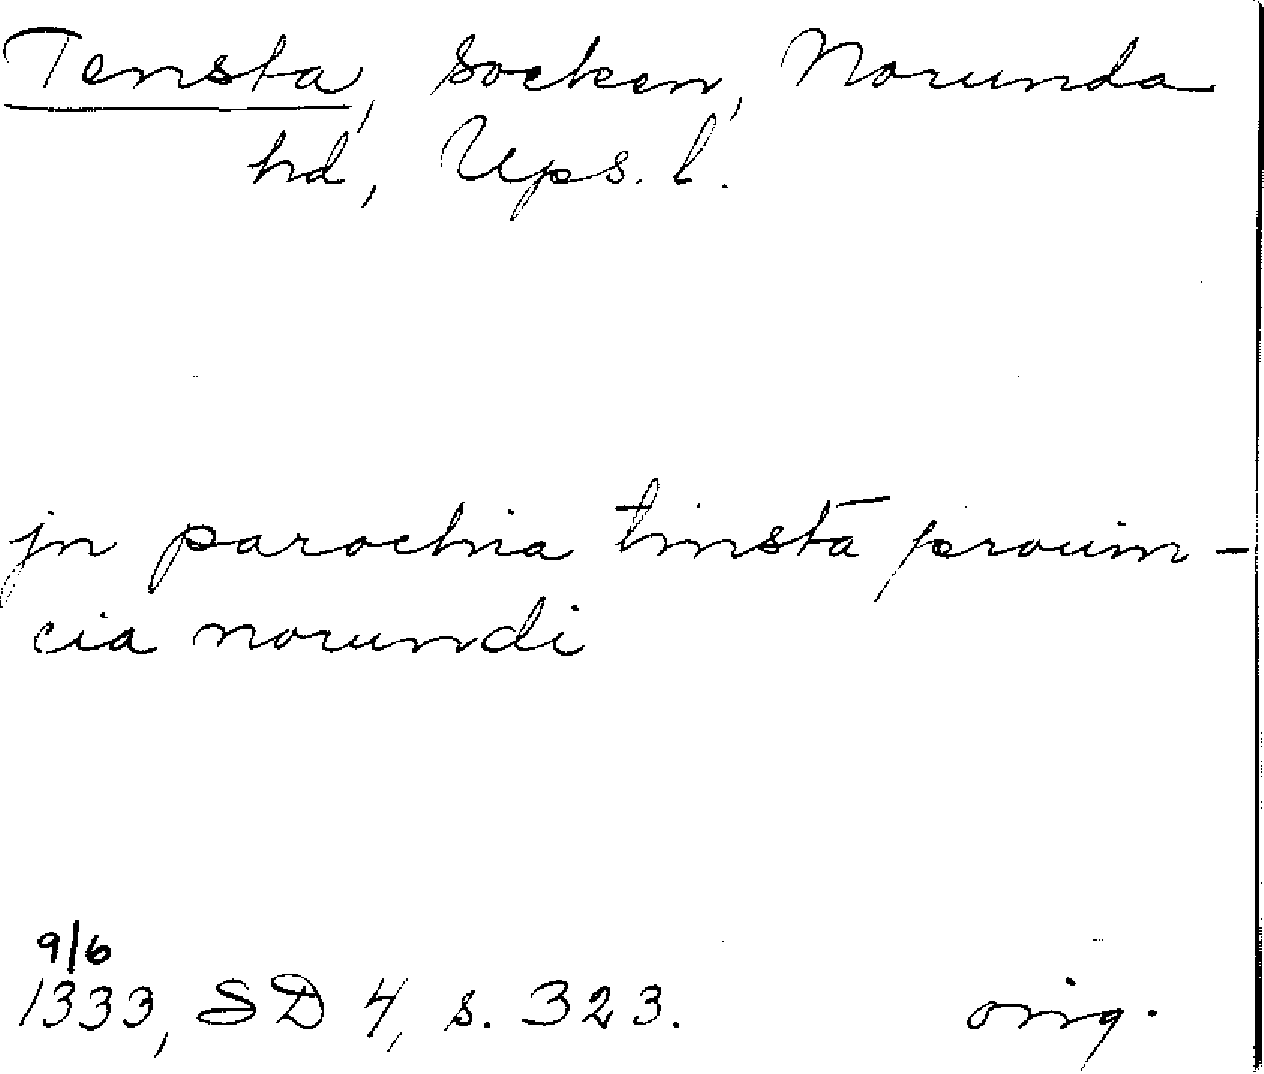 Tensta, Socken, Norunda
hd, Ups. l.
jn parochia tinsta prouin-
cia norundi
9/6
1333, SD 4, s. 323. orig.